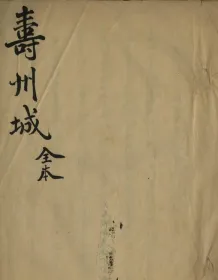 壽州城
全本